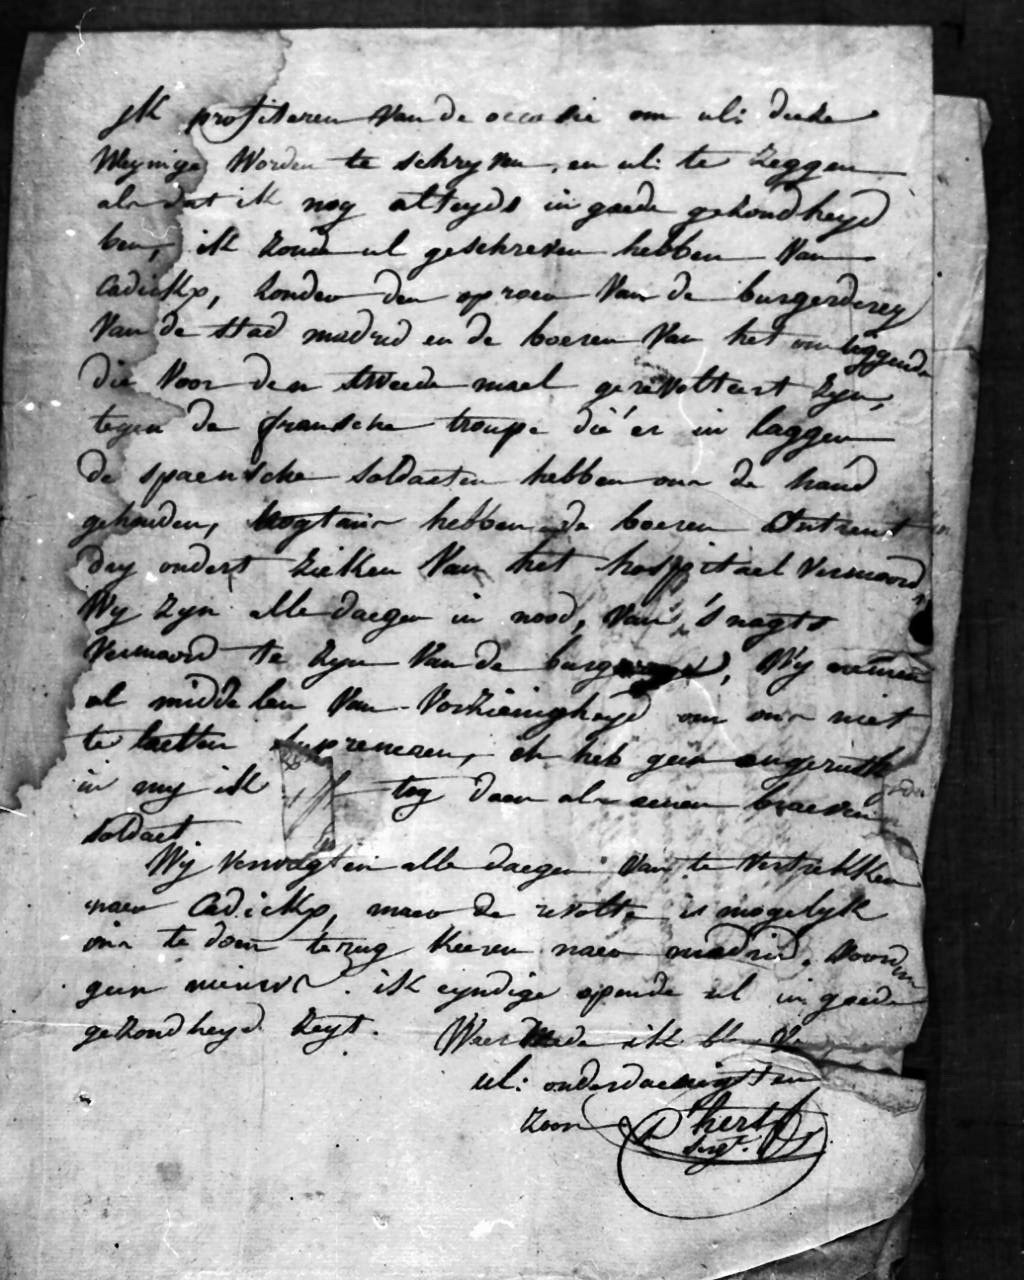 ik profiteren van de occasie om uli: deese
Weynige Worden te schryven, en uli: te zeggen
als dat ik nog alteyds in goede gezondheyd
ben, ik zoude ul geschreven hebben Van
Cadickx, zonder den oproer Van de burgerderey
Van de stad madrid en de boeren Van het omliggende
die Voor den tweede mael gerevolteert zyn,
tegen de fransche troupe die er in laggen
de spaensche soldaeten hebben ons de hand
gehouden, nogtans hebben de boeren omtrent
dry ondert zieken Van het hospitael vermoord,
Wy zyn alle daegen in nood, van 's nagts
Vermoord te zyn Van de Wy
al middelen Van Vorzienigheyd om ons niet
te laetten supreneren, ik heb geen ongerust
in my ik tog doen als eenen braeven
soldaet
Wij verwagten alle daegen Van te vertrekken
naer Cadickx, maer de revolte is mogelyk
ons te doen terug keeren naer madrid. Voorder
geen nieuws. ik eyndige opende ul in goede
gezondheyd zeyt. Waer mede ik
uli: onderdaenigsten
zoon
P hert
sergt.